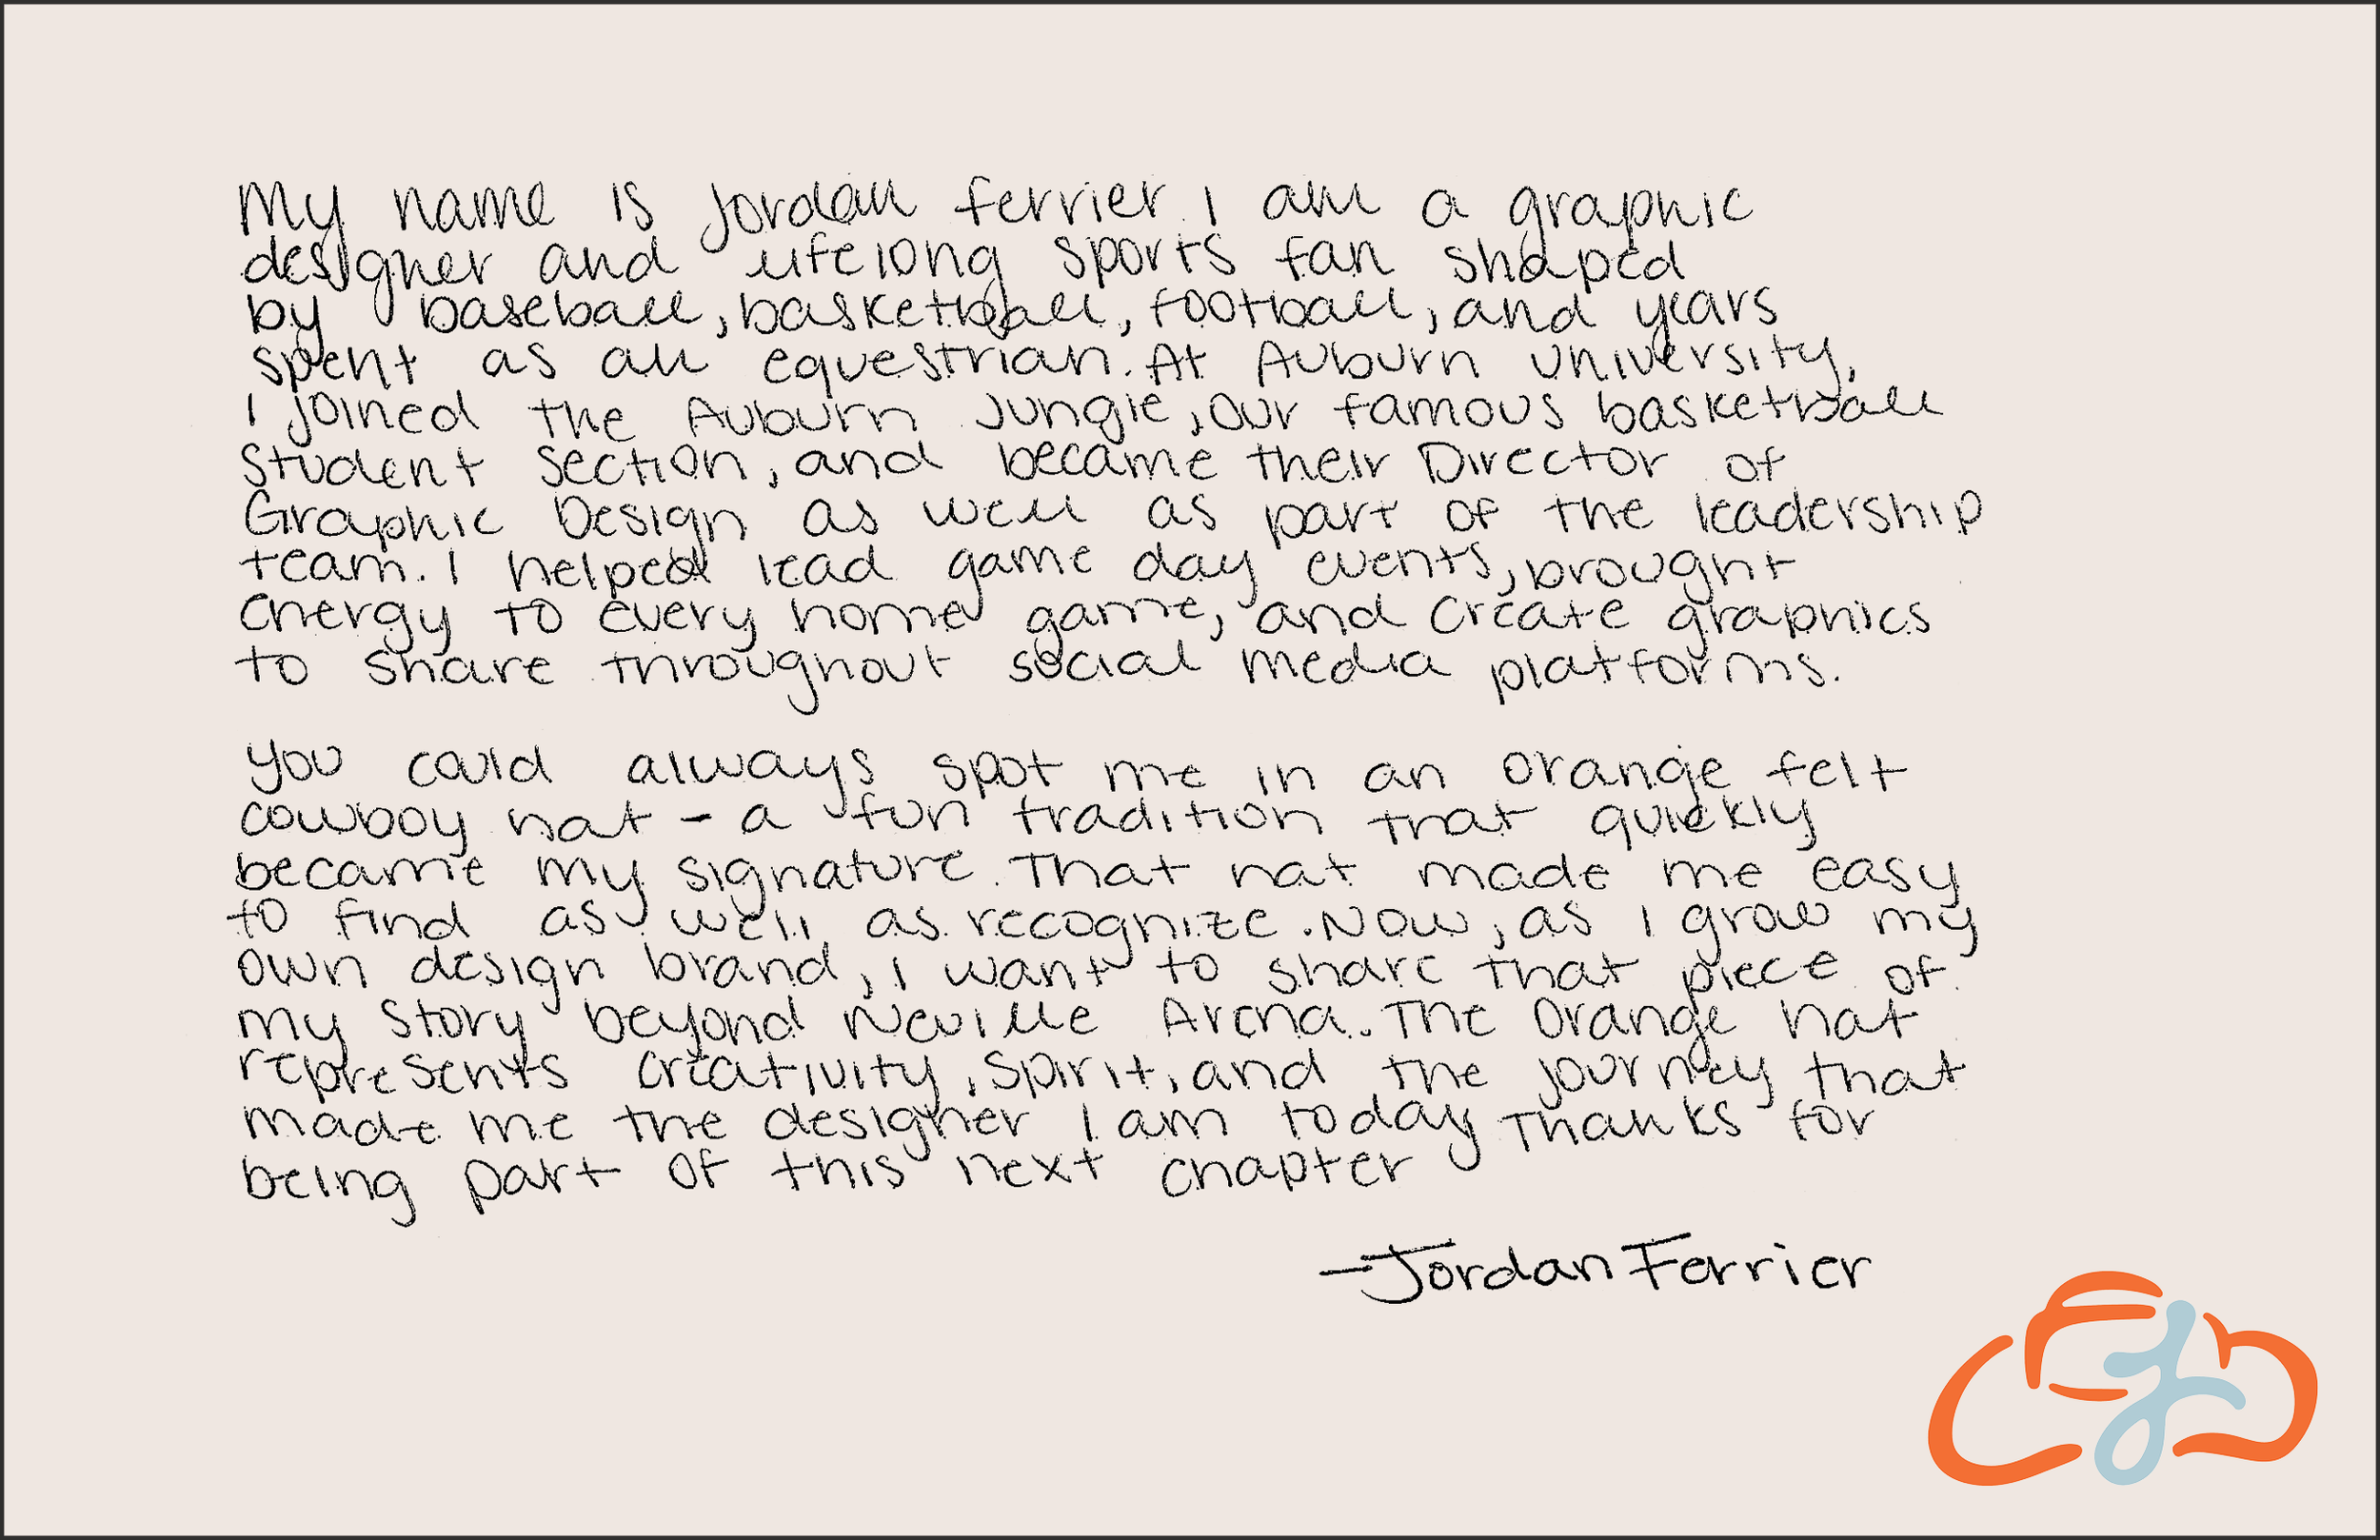 My name is Jordan Ferrier. I am a graphic
designer and lifelong sports fan shaped
by baseball, basketball, football, and years
spent as an equestrian. At Auburn University,
I joined the Auburn Jungle, our famous basketball
student section, and became their Director of
Graphic Design as well as part of the leadership
team. I helped lead game day events, brought
energy to every home game, and create graphics
to share throughout social media platforms.
You could always spot me in an orange felt
cowboy hat - a fun tradition that quickly
became my signature. That hat made me easy
to find as well as recognize. Now, as I grow my
own design brand, I want to share that piece of
my story beyond Neville Arena. The Orange hat
represents creativity, spirit, and the journey that
made me the designer I am today Thanks for
being part of this next chapter
—Jordan Ferrier